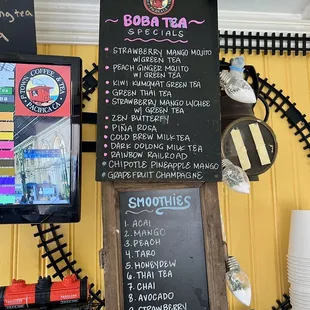 BOBA TEA
SPECIALS
STRAWBERRY MANGO MOJITO
W/GREEN TEA
PEACH GINGER MOJITO
W/ GREEN TEA
KIWI KUMQUAT GREEN TEA
GREEN THAI TEA
STRAWBERRY MANGO LYCHEE
W/ GREEN TEA
ZEN BUTTERFLY
PIÑA ROSA
COLD BREW MILK TEA
DARK OOLONG MILK TEA
RAINBOW RAILROAD
CHIPOTLE PINEAPPLE MANGO
GRAPEFRUIT CHAMPAGNE
COFFEE & TEA
PACIFICA CA
SMOOTHIES
1. ACAI
2. MANGO
3. PEACH
4. TARO
5. HONEYDEW
6. THAI TEA
7. CHAI
8. AVOCADO
9. STRAWBERRY